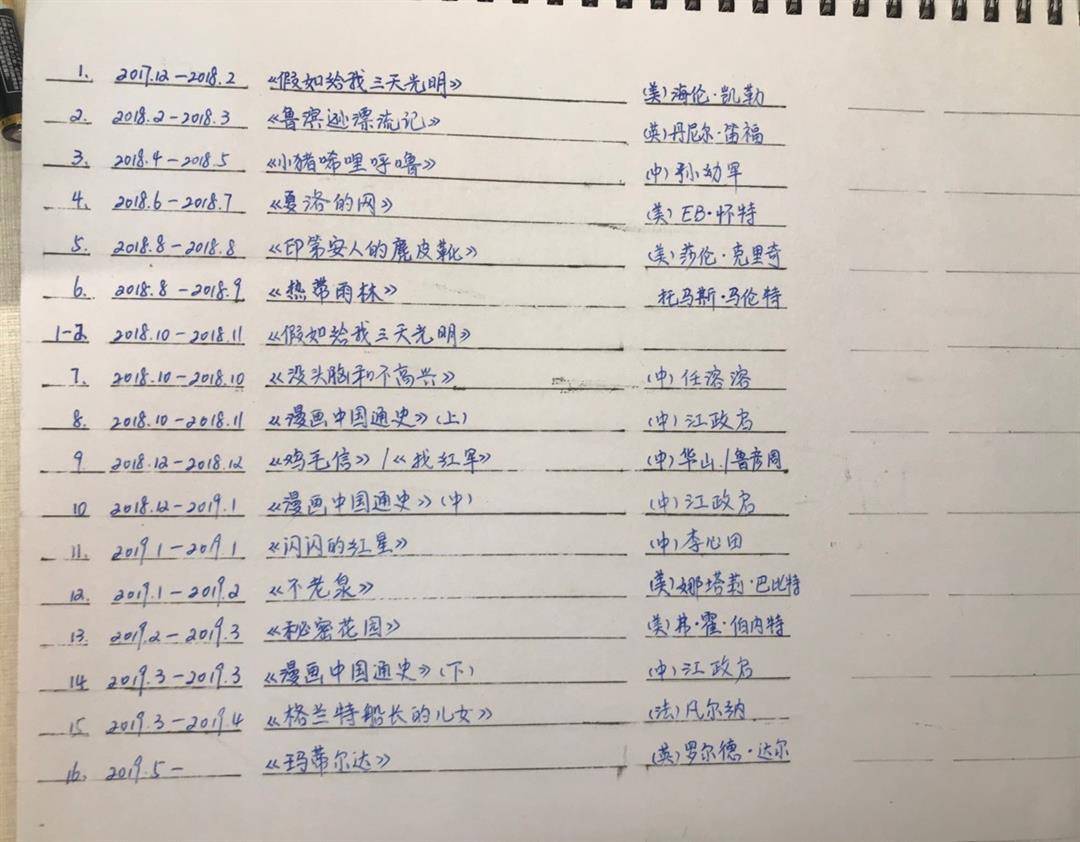 1. 2017.12-2018.2 《假如给我三天光明》 (美)海伦·凯勒
2. 2018.2-2018.3 《鲁滨逊漂流记》 (英)丹尼尔·笛福
3. 2018.4-2018.5 《小猪唏哩呼噜》 (中)孙幼军
4. 2018.6-2018.7 《夏洛的网》 (美)EB·怀特
5. 2018.8-2018.8 《印第安人的麂皮靴》 (美)莎伦·克里奇
6. 2018.8-2018.9 《热带雨林》 托马斯·马伦特
1-2. 2018.10-2018.11 《假如给我三天光明》
7. 2018.10-2018.10 《没头脑和不高兴》 (中)任溶溶
8. 2018.10-2018.11 《漫画中国通史》(上) (中)江政启
9 2018.12-2018.12 《鸡毛信》/《找红军》 (中)华山/鲁彦周
10 2018.12-2019.1 《漫画中国通史》(中) (中)江政启
11. 2019.1-2019.1 《闪闪的红星》 (中)李心田
12. 2019.1-2019.2 《不老泉》 (美)娜塔莉·巴比特
13. 2019.2-2019.3 《秘密花园》 (美)弗·霍·伯内特
14 2019.3-2019.3 《漫画中国通史》(下) (中)江政启
15 2019.3-2019.4 《格兰特船长的儿女》 (法)凡尔纳
16. 2019.5- 《玛蒂尔达》 (英)罗尔德·达尔